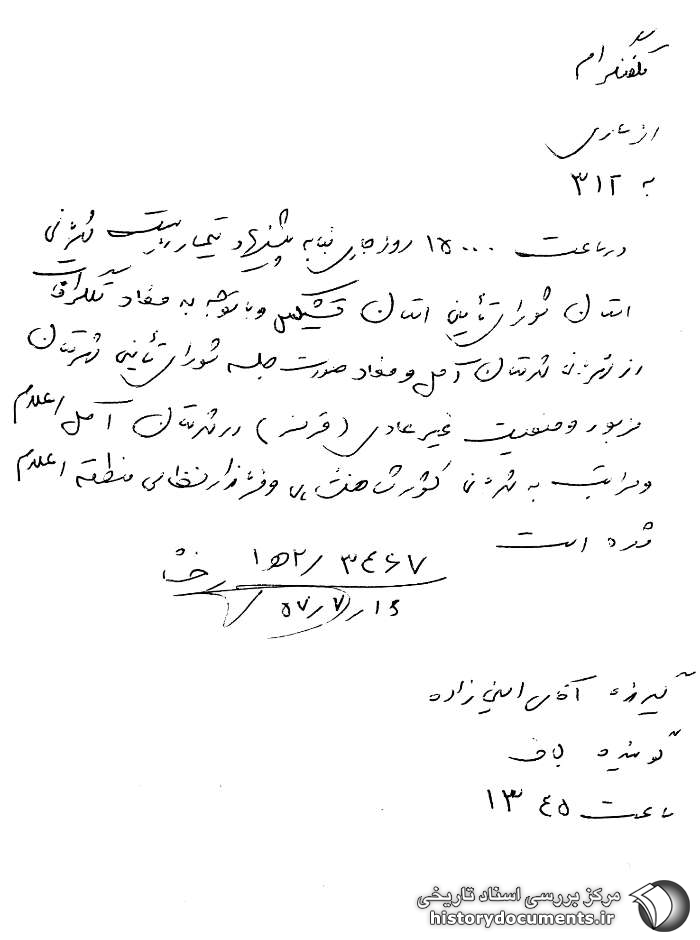 تلفنگرام
از ساری
به ۳۱۲
در ساعت ۱۵۰۰۰ روز جاری بنا به پیشنهاد تیمسار ریاست شهربانی
استان شورای تأمین استان تشکیل و با توجه به مفاد تلگرافات
از شهربانی شهرستان آمل و مفاد صورت جلسه شورای تأمین شهرستان
مزبور وضعیت غیر عادی (قرمز) در شهرستان آمل اعلام
و مراتب به شهربانی کشور شاهنشاهی و فرماندار نظامی منطقه اعلام
شده است
۳۴۶۷ / ۲ه۱
۵۷/۷/۱۶
گیرنده آقای امینی زاده
گوینده
ساعت ۱۳۴۵
مرکز بررسی اسناد تاریخی
historydocuments.ir